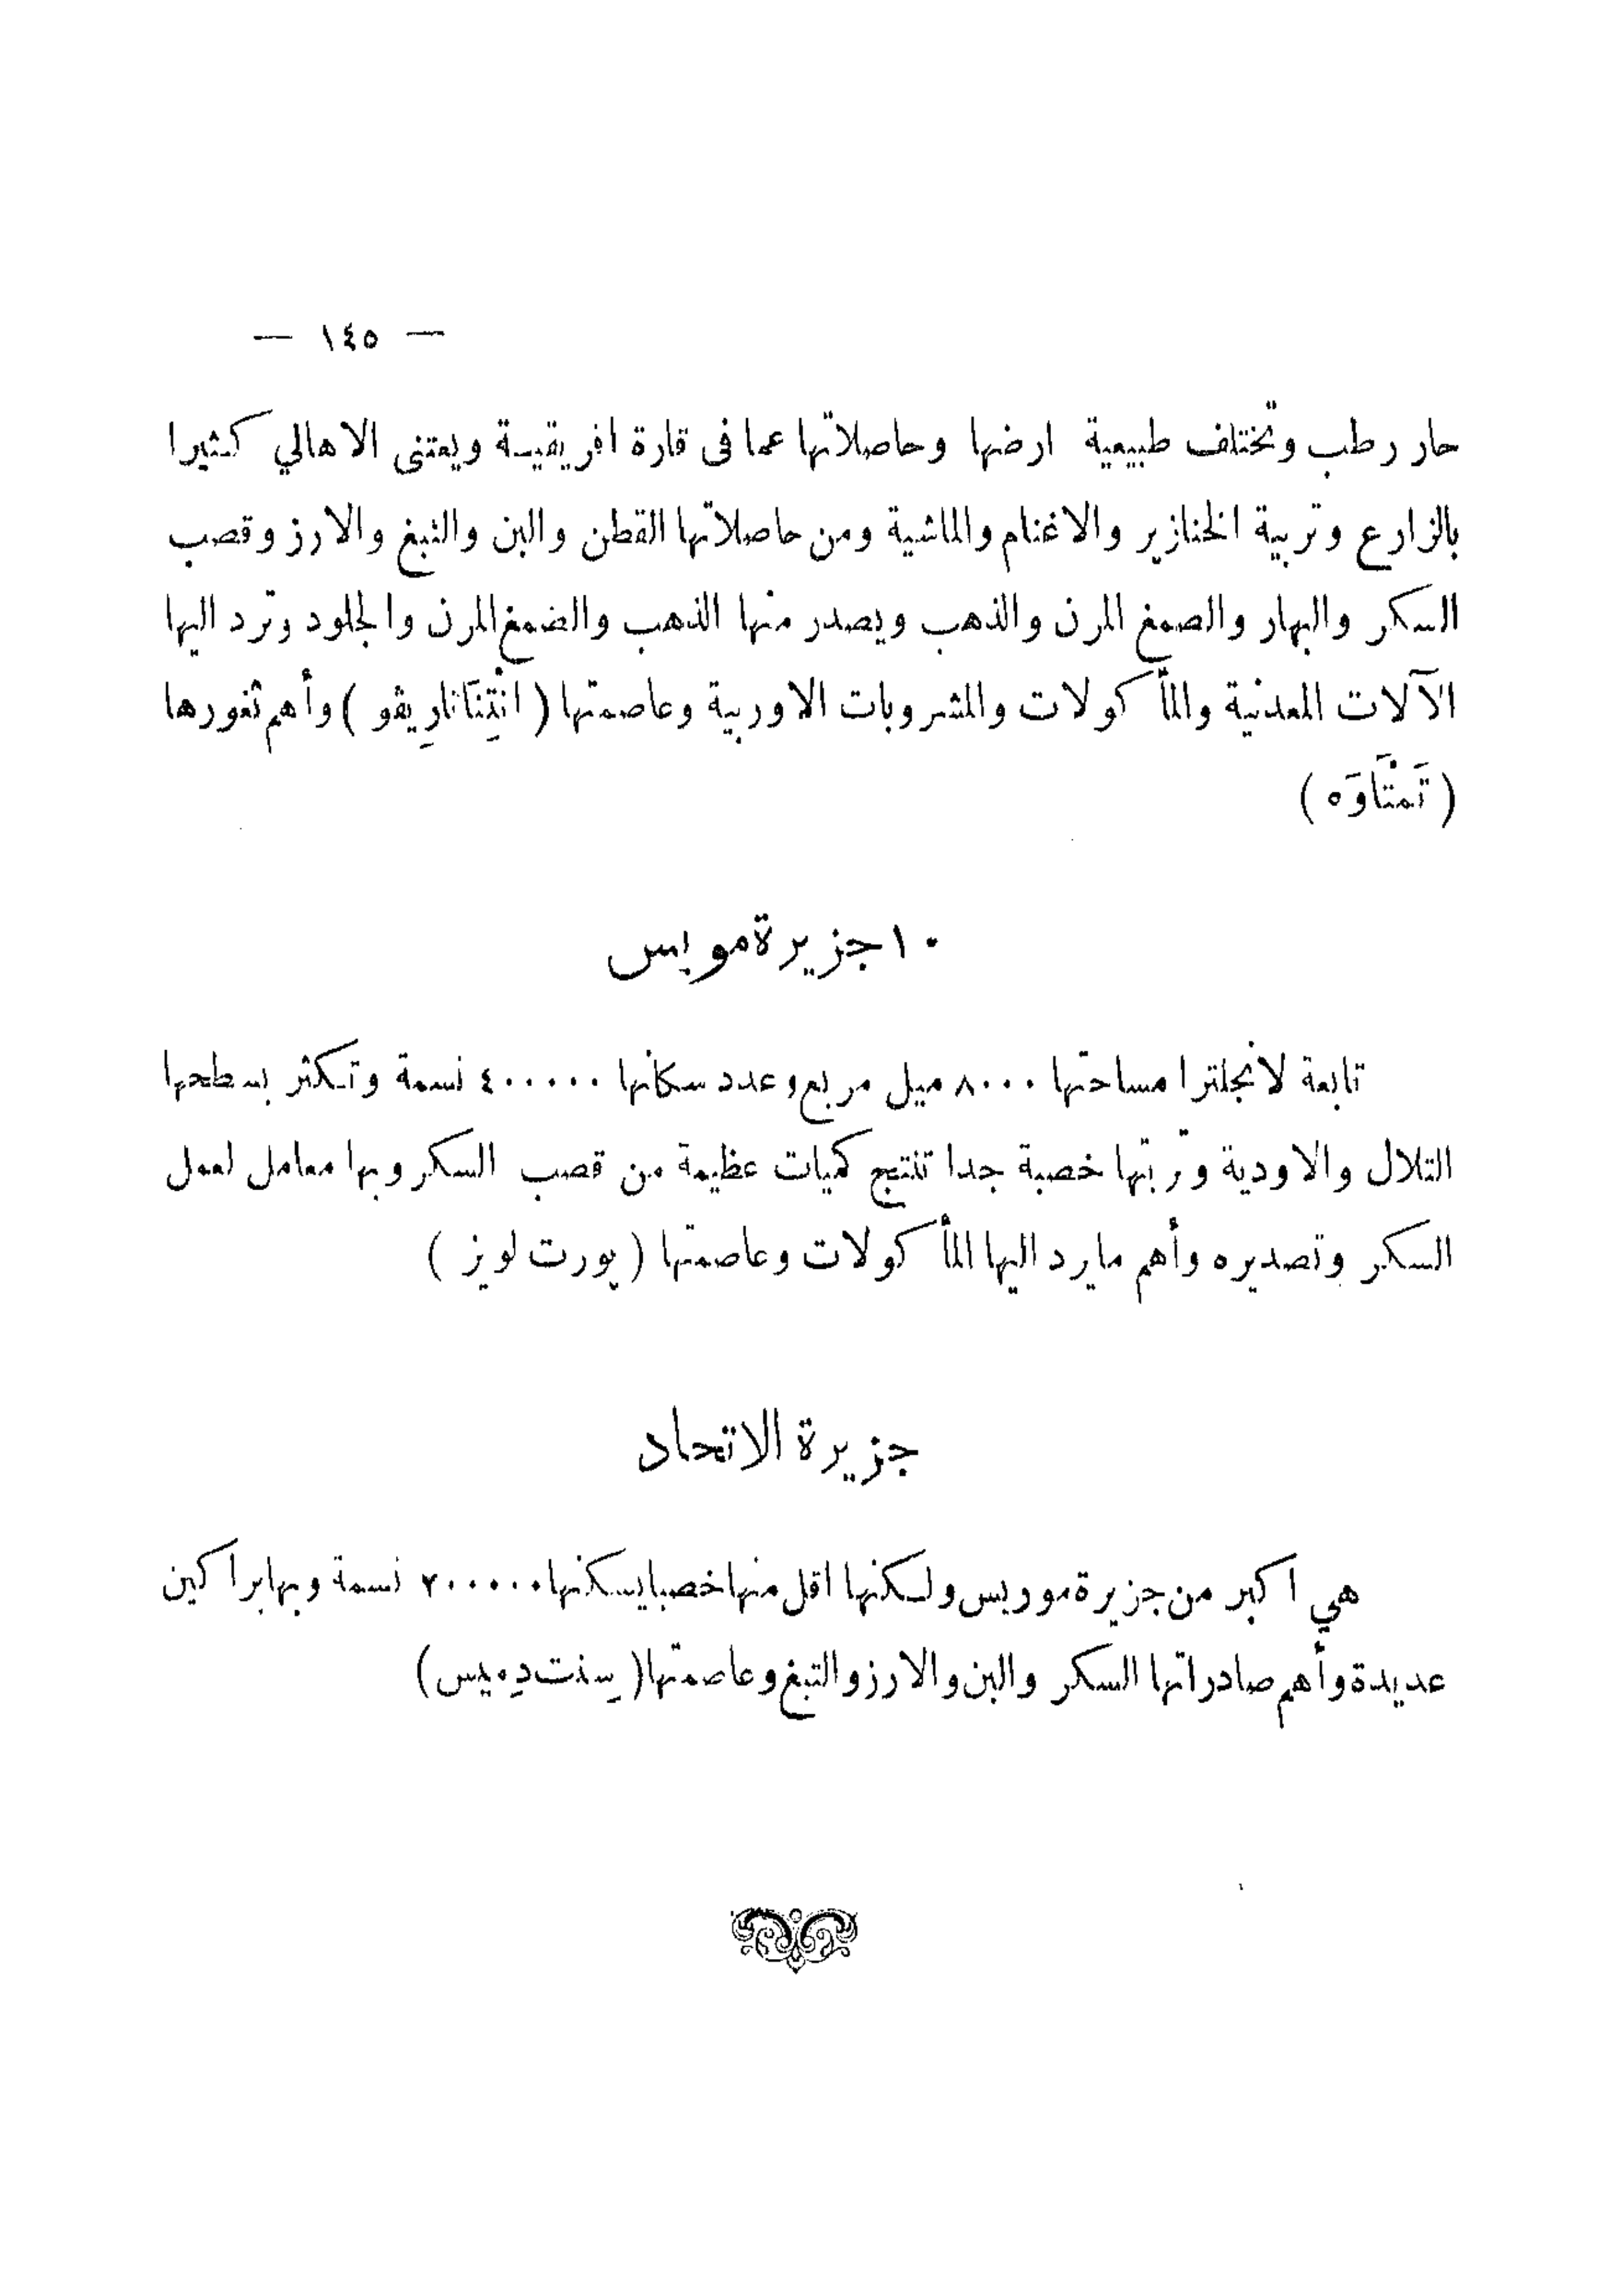 — ١٤٥ —
حار رطب وتختلف طبيعية ارضها وحاصلاتها عما فى قارة افريقيـة ويعتنى الاهالي كثيرا
بالزارع وتربية الخنازير والاغنام والماشية ومن حاصلاتها القطن والبن والتبغ والارز وقصب
السكر والبهار والصمغ المرن والذهب ويصدر منها الذهب والضمغ المرن والجلود وترد اليها
الآلات المعدنية والمأكولات والمشروبات الاوربية وعاصمتها ( انْتِنَانارِيڤو ) وأهم ثغورها
( تَمْتَاوَه )
١٠ جزيرة مويس
تابعة لانجلترا مساحتها ٨٠٠٠ ميل مربع وعدد سكانها ٤٠٠٠٠٠ نسمة وتكثر بسطحها
التلال والاودية وتربتها خصبة جدا تنتج كميات عظيمة من قصب السكر وبها معامل لعمل
السكر وتصديره وأهم مايرد اليها المأكولات وعاصمتها ( پورت لويز )
جزيرة الاتحاد
هي اكبر من جزيرة موريس ولكنها اقل منها خصبا يسكنها ٢٠٠٠٠٠ نسمة وبها براكين
عديدة وأهم صادراتها السكر والبن والارز والتبغ وعاصمتها ( سِنت دِميس )